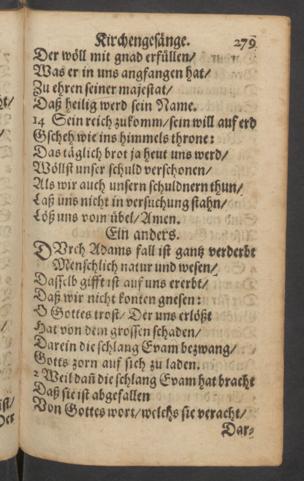 Kirchengesänge. 279
Der wöll mit gnad erfüllen/
Was er in uns angfangen hat/
Zu ehren seiner majestat/
Daß heilig werd sein Name.
14 Sein reich zukomm/ sein will auf erd
Gscheh wie ins himmels throne:
Das täglich brot ja heut uns werd/
Wöllst unser schuld verschonen/
Als wir auch unsern schuldnern thun/
Laß uns nicht in versuchung stahn/
Löß uns vom übel/ Amen.
Ein anders.
DUrch Adams fall ist gantz verderbt
Menschlich natur und wesen/
Dasselb gifft ist auf uns ererbt/
Daß wir nicht konten gnesen:
O Gottes trost/ Der uns erlößt
Hat von dem grossen schaden/
Darein die schlang Evam bezwang/
Gotts zorn auf sich zu laden.
2 Weil dañ die schlang Evam hat bracht
Daß sie ist abgefallen
Von Gottes wort/ welchs sie veracht/
Dar-